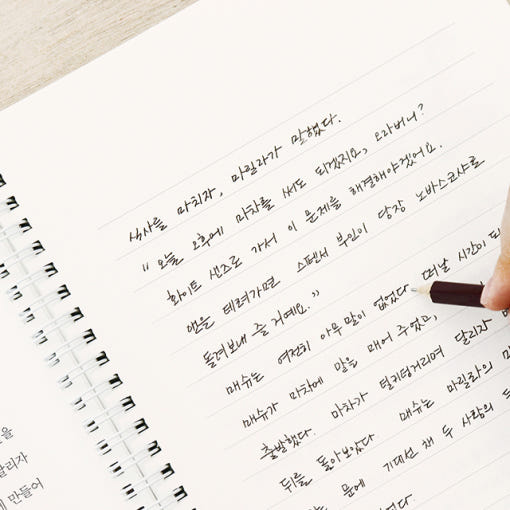 식사를 마치자, 마릴라가 말했다.
"오늘 오후에 마차를 써도 되겠지요, 오라버니?
화이트 샌즈로 가서 이 문제를 해결해야겠어요.
앤을 데려가면 스펜서 부인이 당장 노바스코샤로
돌려보내 줄 거예요."
매슈는 여전히 아무 말이 없었다. 떠날 시간이 되
매슈가 마차에 말을 매어 주었고,
출발했다. 마차가 덜커덩거리며 달리자
뒤를 돌아보았다. 매슈는 마릴라의
는 문에 기대선 채 두 사람의
었다
을
달리자
에 만들어